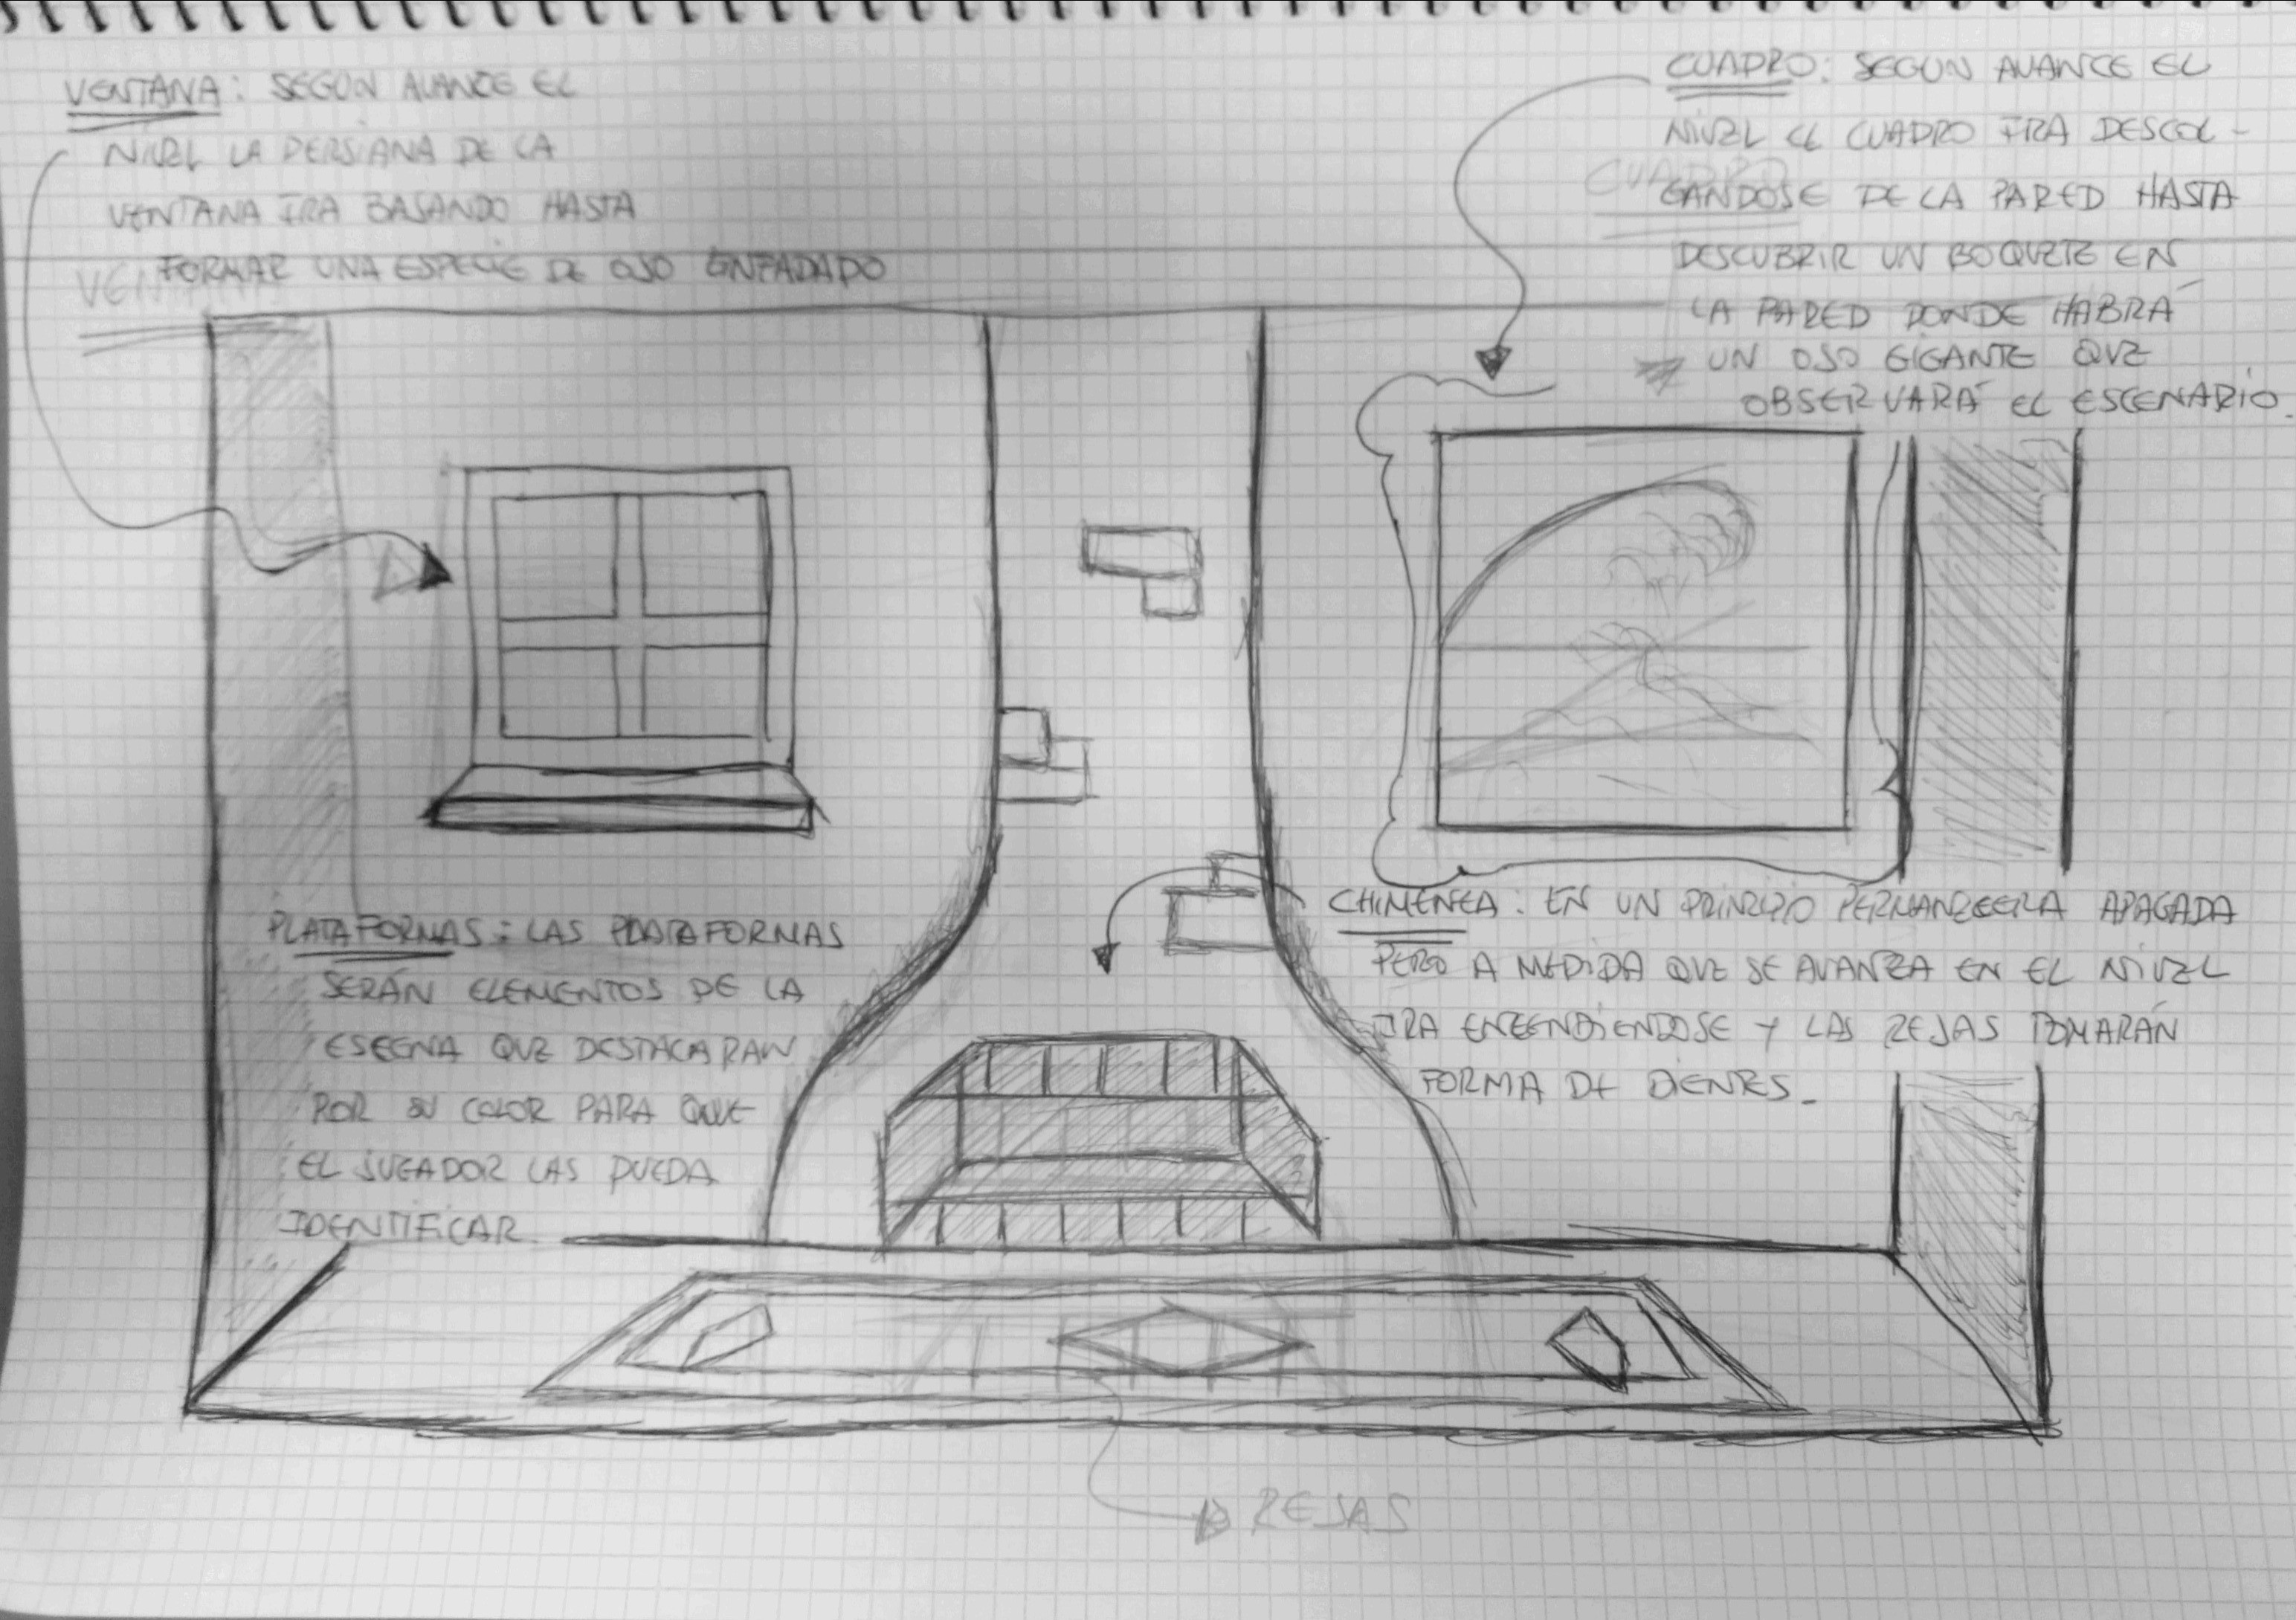 VENTANA: SEGUN AVANCE EL
NIVEL LA PERSIANA DE LA
VENTANA IRA BAJANDO HASTA
FORMAR UNA ESPECIE DE OJO ENFADADO
CUADRO: SEGUN AVANCE EL
NIVEL EL CUADRO IRA DESCOL-
GANDOSE DE LA PARED HASTA
CUADRO
DESCUBRIR UN BOQUETE EN
LA PARED DONDE HABRÁ
UN OJO GIGANTE QUE
OBSERVARÁ EL ESCENARIO.
PLATAFORMAS: LAS PLATAFORMAS
SERÁN ELEMENTOS DE LA
ESCENA QUE DESTACARAN
POR SU COLOR PARA QUE
EL JUGADOR LAS PUEDA
IDENTIFICAR.
CHIMENEA: EN UN PRINCIPIO PERMANECERA APAGADA
PERO A MEDIDA QUE SE AVANZA EN EL NIVEL
IRA ENCENDIENDOSE Y LAS REJAS TOMARÁN
FORMA DE DIENTES.
REJAS